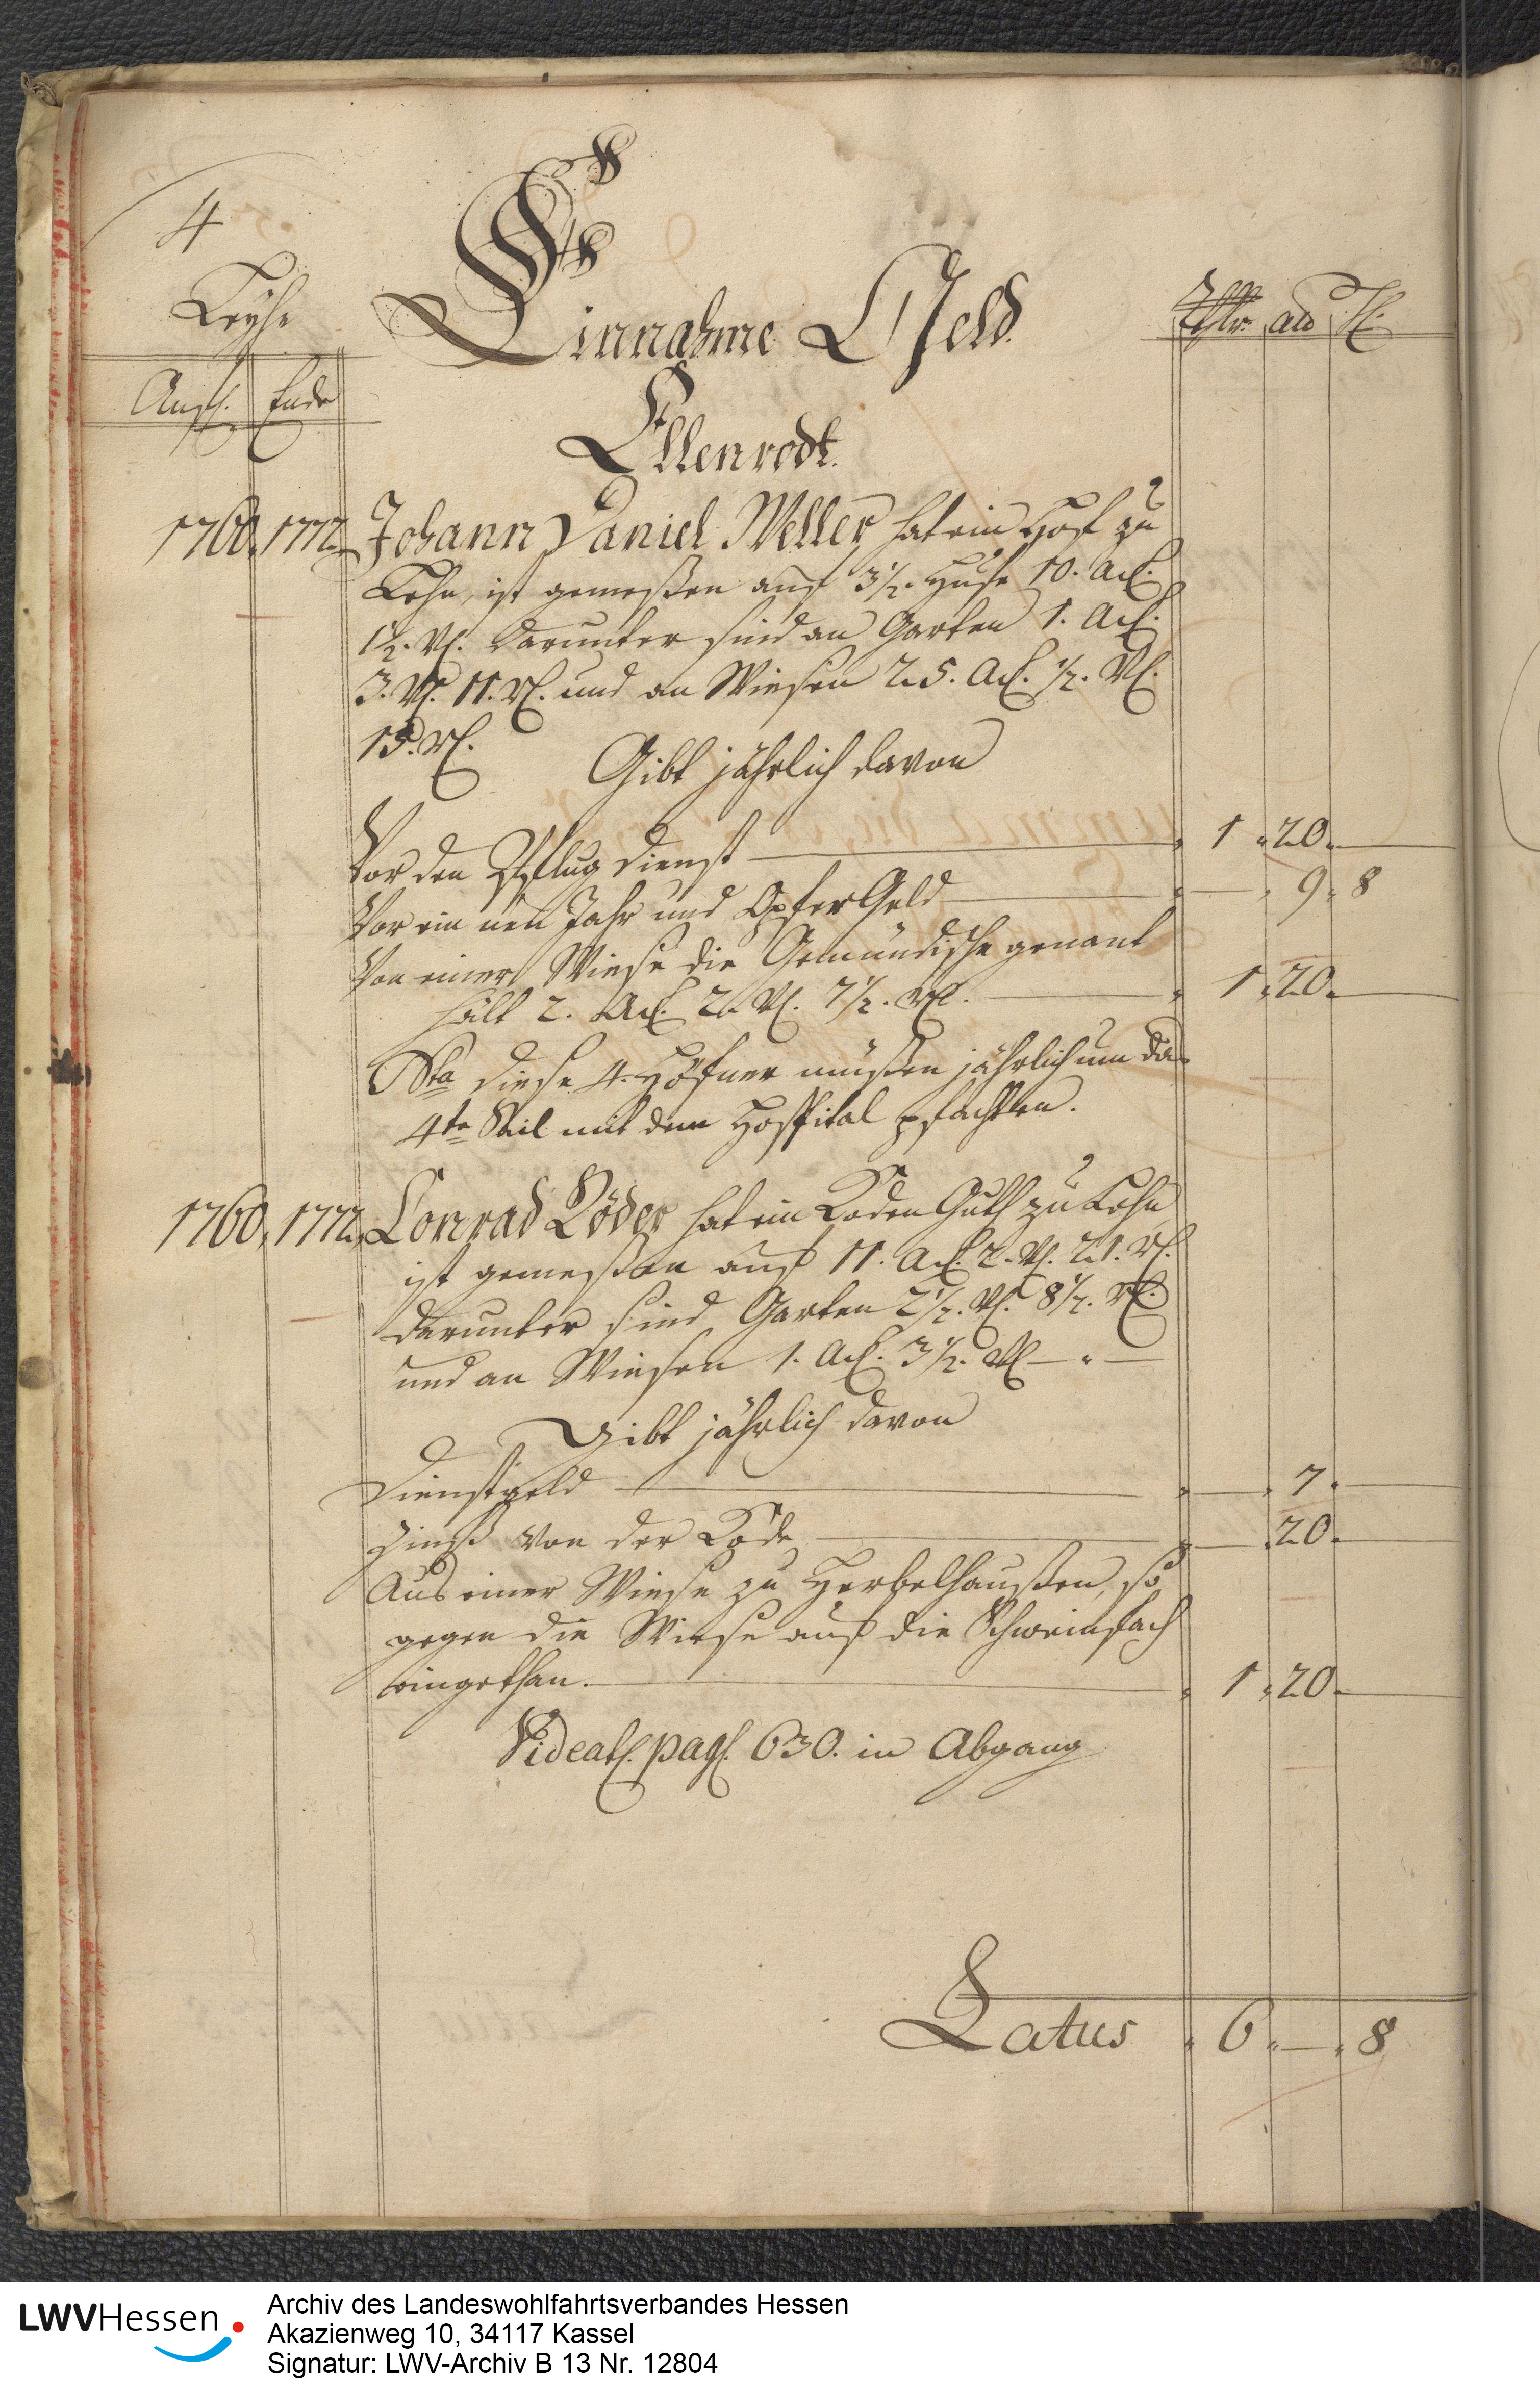 4
Leyhe
Einnahme Geld.
Rthlr. alb hl.
Anf. Ende
Ellenrodt.
1760. 1772. Johann Daniel Weller hat ein Hof zu
Lehn, ist gemeßen auf 3½. Hufe 10. Ack.
1½. Vl. Darunter sind an Garten 1. Ack.
3. Vl. 11. Rt. und an Wiesen 25. Ack. ½. Vl.
15. Rt.
Gibt jährlich davon
Vor den Pflug dienst 1. 20.
Vor ein neu Jahr und Opfer Geld 9. 8
Von einer Wiese die Gemündische genant
hält 2. Ack. 2. Vl. 7½. Rt. 1. 20.
Nta diese 4. Höfner müßen jährlich um das
4te Theil mit dem Hospital pfachten.
1760. 1772. Conrad Röder hat ein Koden Guth zu Lehn
ist gemeßen auf 11. Ack. 2. Vl. 21. Rt.
darunter sind Garten 2½. Vl. 8½. Rt.
und an Wiesen 1. Ack. 3½. Vl — " —
Gibt jährlich davon
Dienstgeld 7.
Zinß von der Köde 20.
Aus einer Wiese zu Herbelhaußen, so
gegen die Wiese auf die Schweinfach
eingethan. 1. 20.
Videat. pag. 630. in Abgang
Latus 6. — . 8
LWVHessen
Archiv des Landeswohlfahrtsverbandes Hessen
Akazienweg 10, 34117 Kassel
Signatur: LWV-Archiv B 13 Nr. 12804